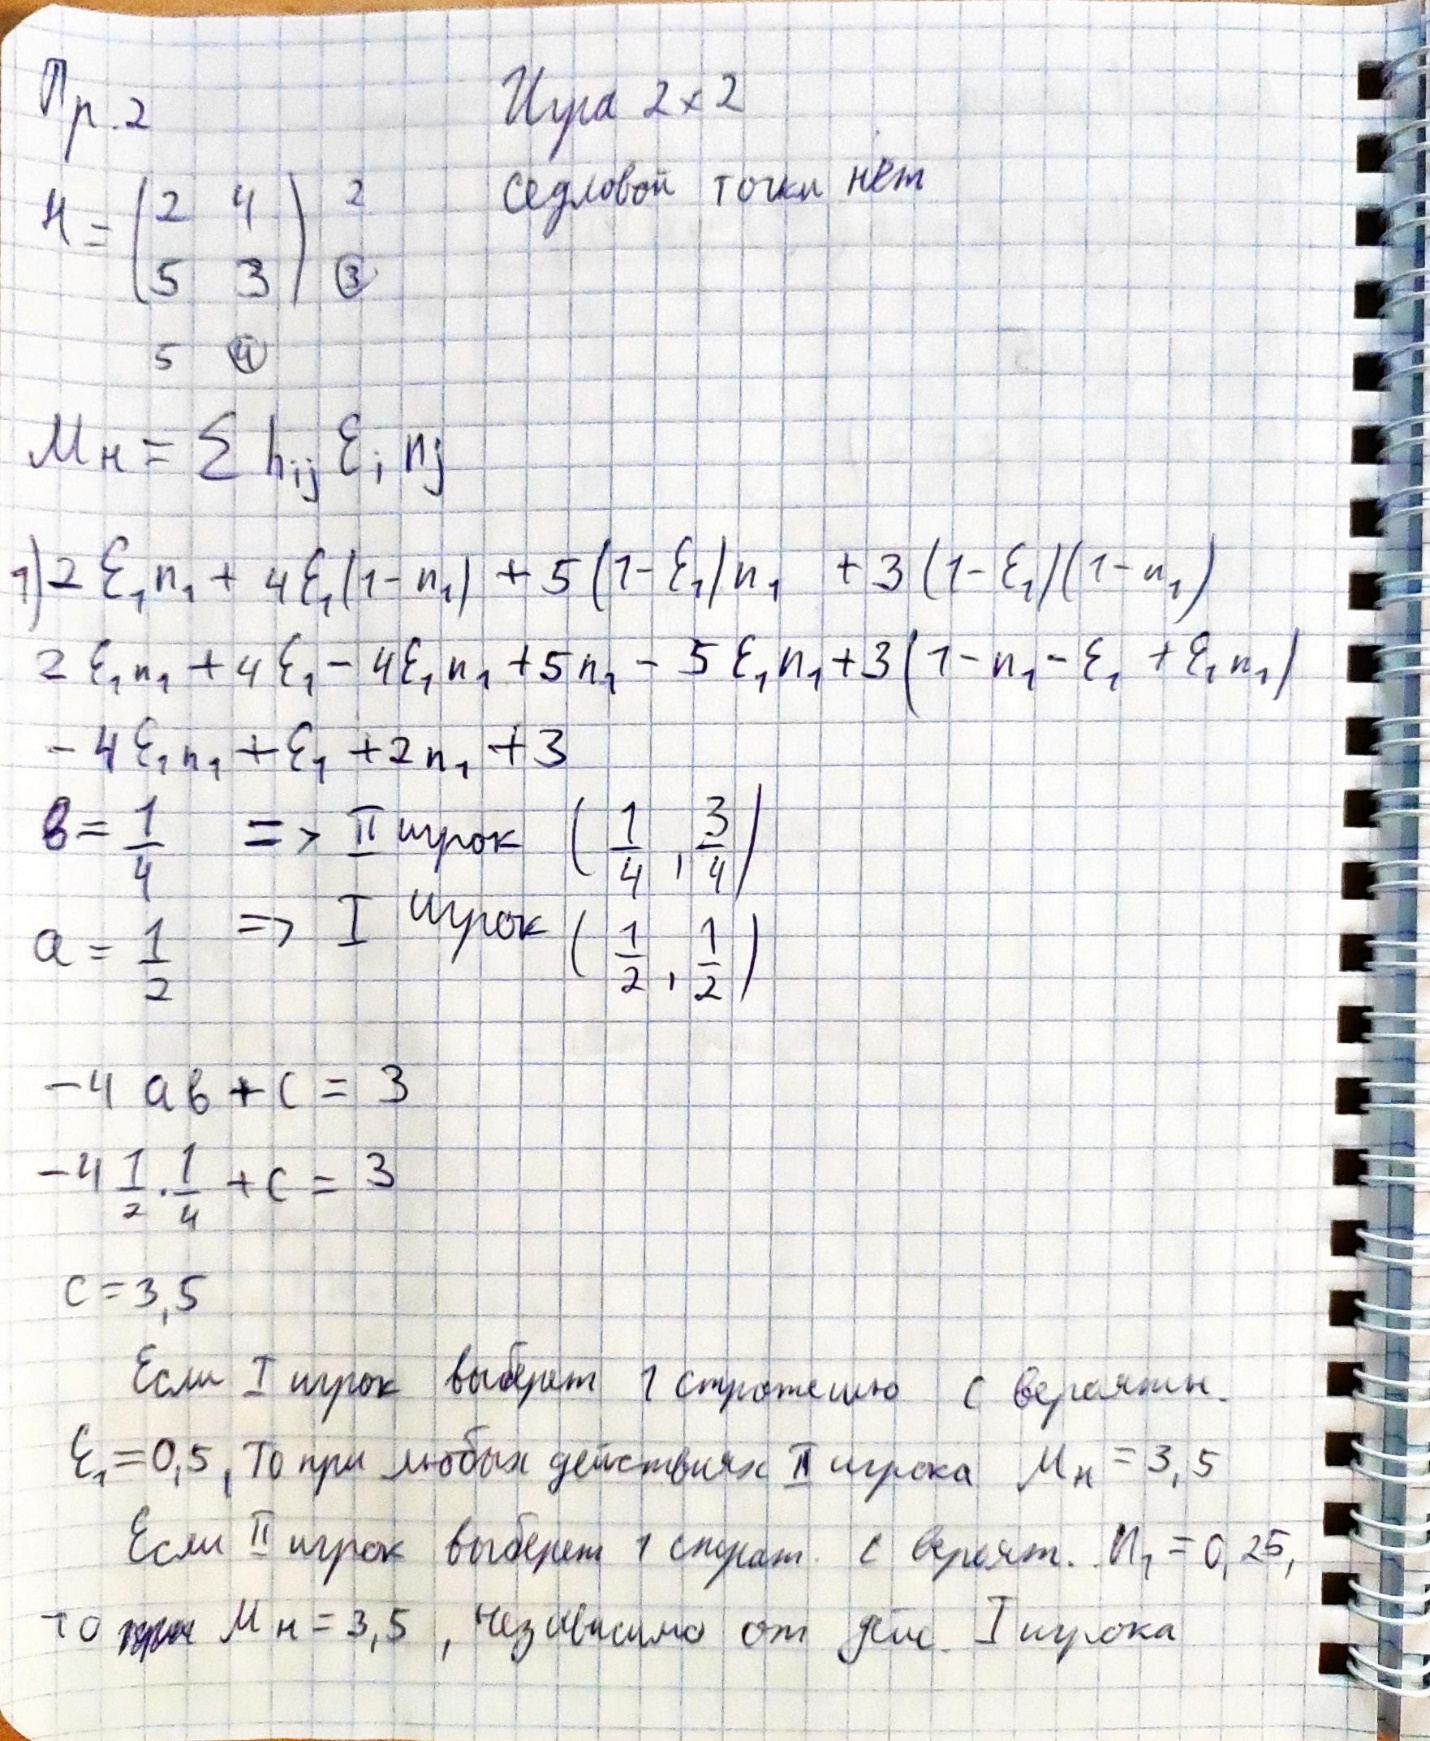 Пр. 2
Игра 2×2
H = (2 4) 2
седловой точки нет
(5 3) ③
5 ④
Mн = Σ hij ξi nj
1) 2ξ₁n₁ + 4ξ₁(1-n₁) + 5(1-ξ₁)n₁ + 3(1-ξ₁)(1-n₁)
2ξ₁n₁ + 4ξ₁ - 4ξ₁n₁ + 5n₁ - 5ξ₁n₁ + 3(1-n₁-ξ₁+ξ₁n₁)
-4ξ₁n₁ + ξ₁ + 2n₁ + 3
в = 1/4 => II игрок (1/4, 3/4)
a = 1/2 => I игрок (1/2, 1/2)
-4 ав + c = 3
-4 1/2 · 1/4 + c = 3
c = 3,5
Если I игрок выберет 1 стратегию с вероятн.
ξ₁ = 0,5, то при любых действиях II игрока Mн = 3,5
Если II игрок выберет 1 страт. с вероят. n₁ = 0,25,
то Mн = 3,5, независимо от дей. I игрока